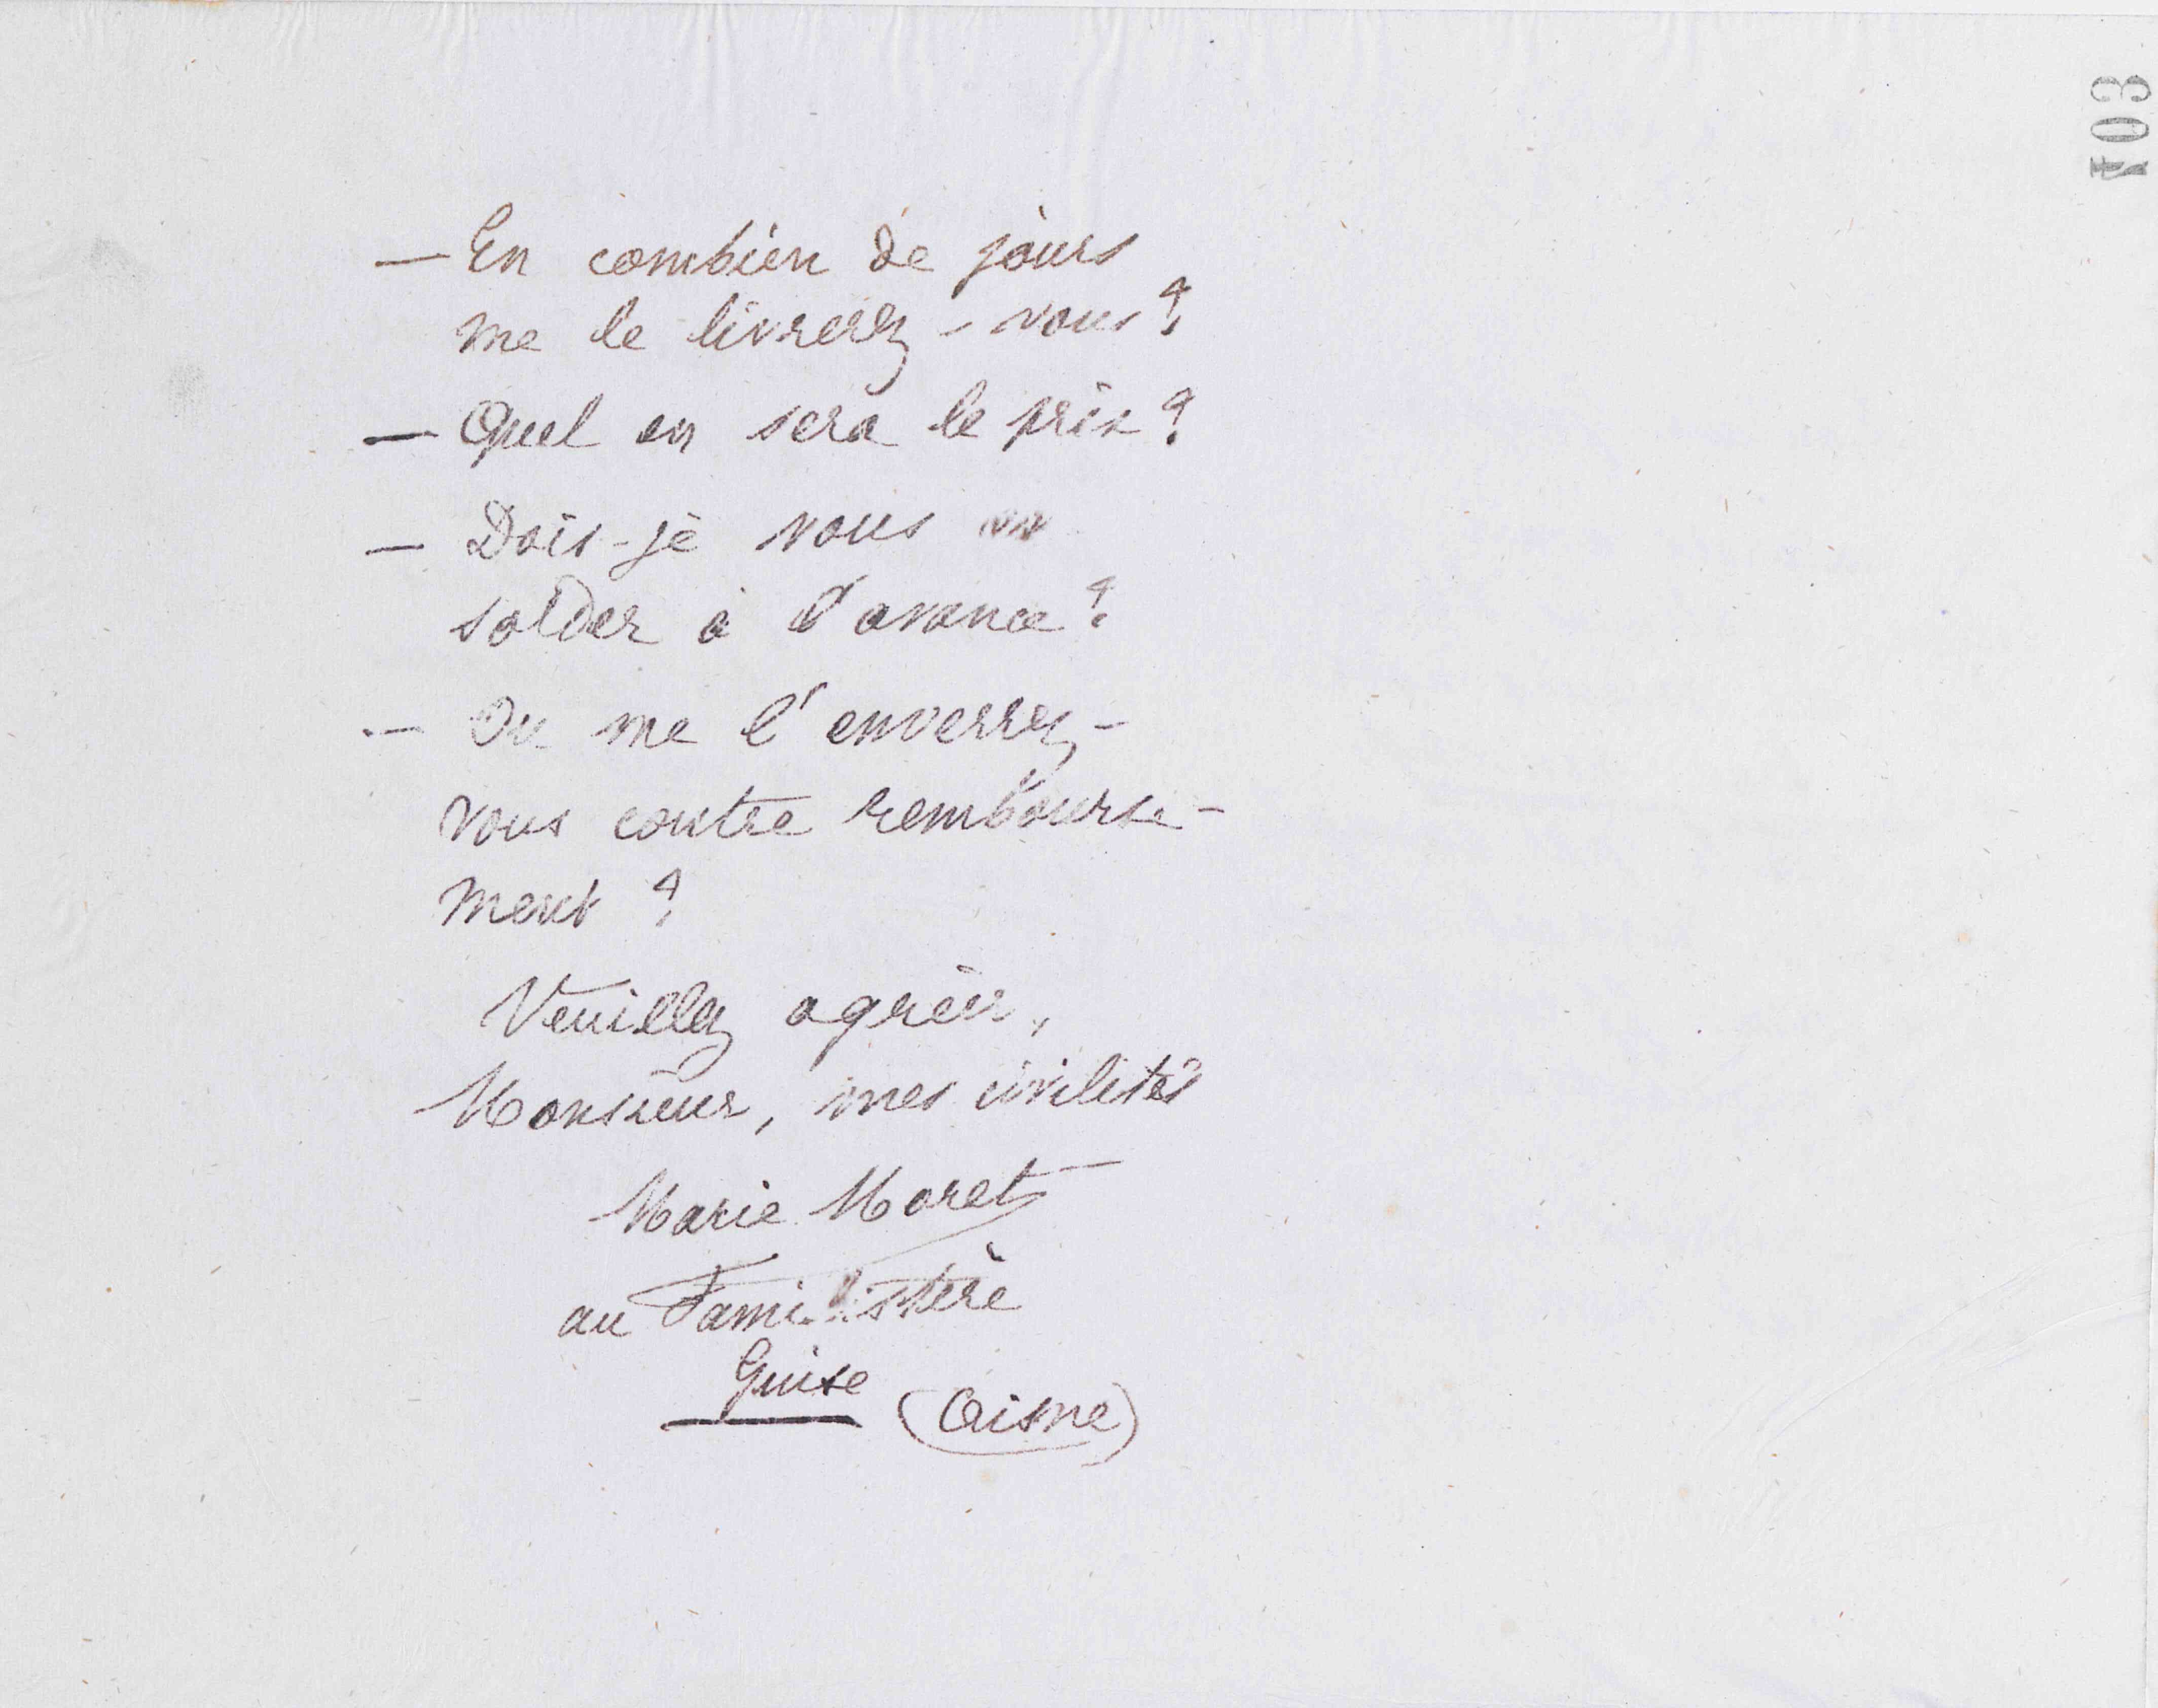 703
— En combien de jours
me le livrerez-vous ?
— Quel en sera le prix ?
— Dois-je vous en
solder à l'avance ?
— Ou me l'enverrez-
vous contre rembourse-
ment ?
Veuillez agréer,
Monsieur, mes civilités
Marie Moret
au Familistère
Guise (Aisne)